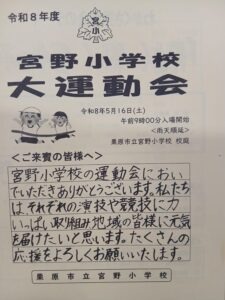 令和8年度
宮小
宮野小学校
大運動会
令和8年5月16日(土)
午前9時00分入場開始
<雨天順延>
栗原市立宮野小学校 校庭
<ご来賓の皆様へ>
宮野小学校の運動会におい
でいただきありがとうございます。私たち
は、それぞれの演技や競技に力
いっぱい取り組み地域の皆様に元気
を届けたいと思います。たくさんの
応援をよろしくお願いいたします。
栗原市立宮野小学校